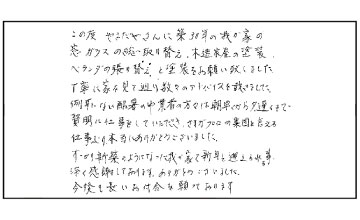 この度 やまだやさんに築38年の我が家の
窓ガラスの総取り替え、木造家屋の塗装、
ベランダの張り替えと塗装をお願い致しました。
丁寧に家を見て廻り数々のアドバイスを戴きました。
例年にない酷暑の中業者の方々は朝早から夕遅くまで
賢明に仕事をしていただき、さすがプロの集団と言える
仕事ぶり本当にありがとうございました。
すっかり新築のようになった我が家で新年を迎えられ事
深く感謝しております。ありがとうございました。
今後も長いお付合を願っております